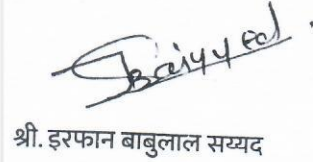 श्री. इरफान बाबुलाल सय्यद